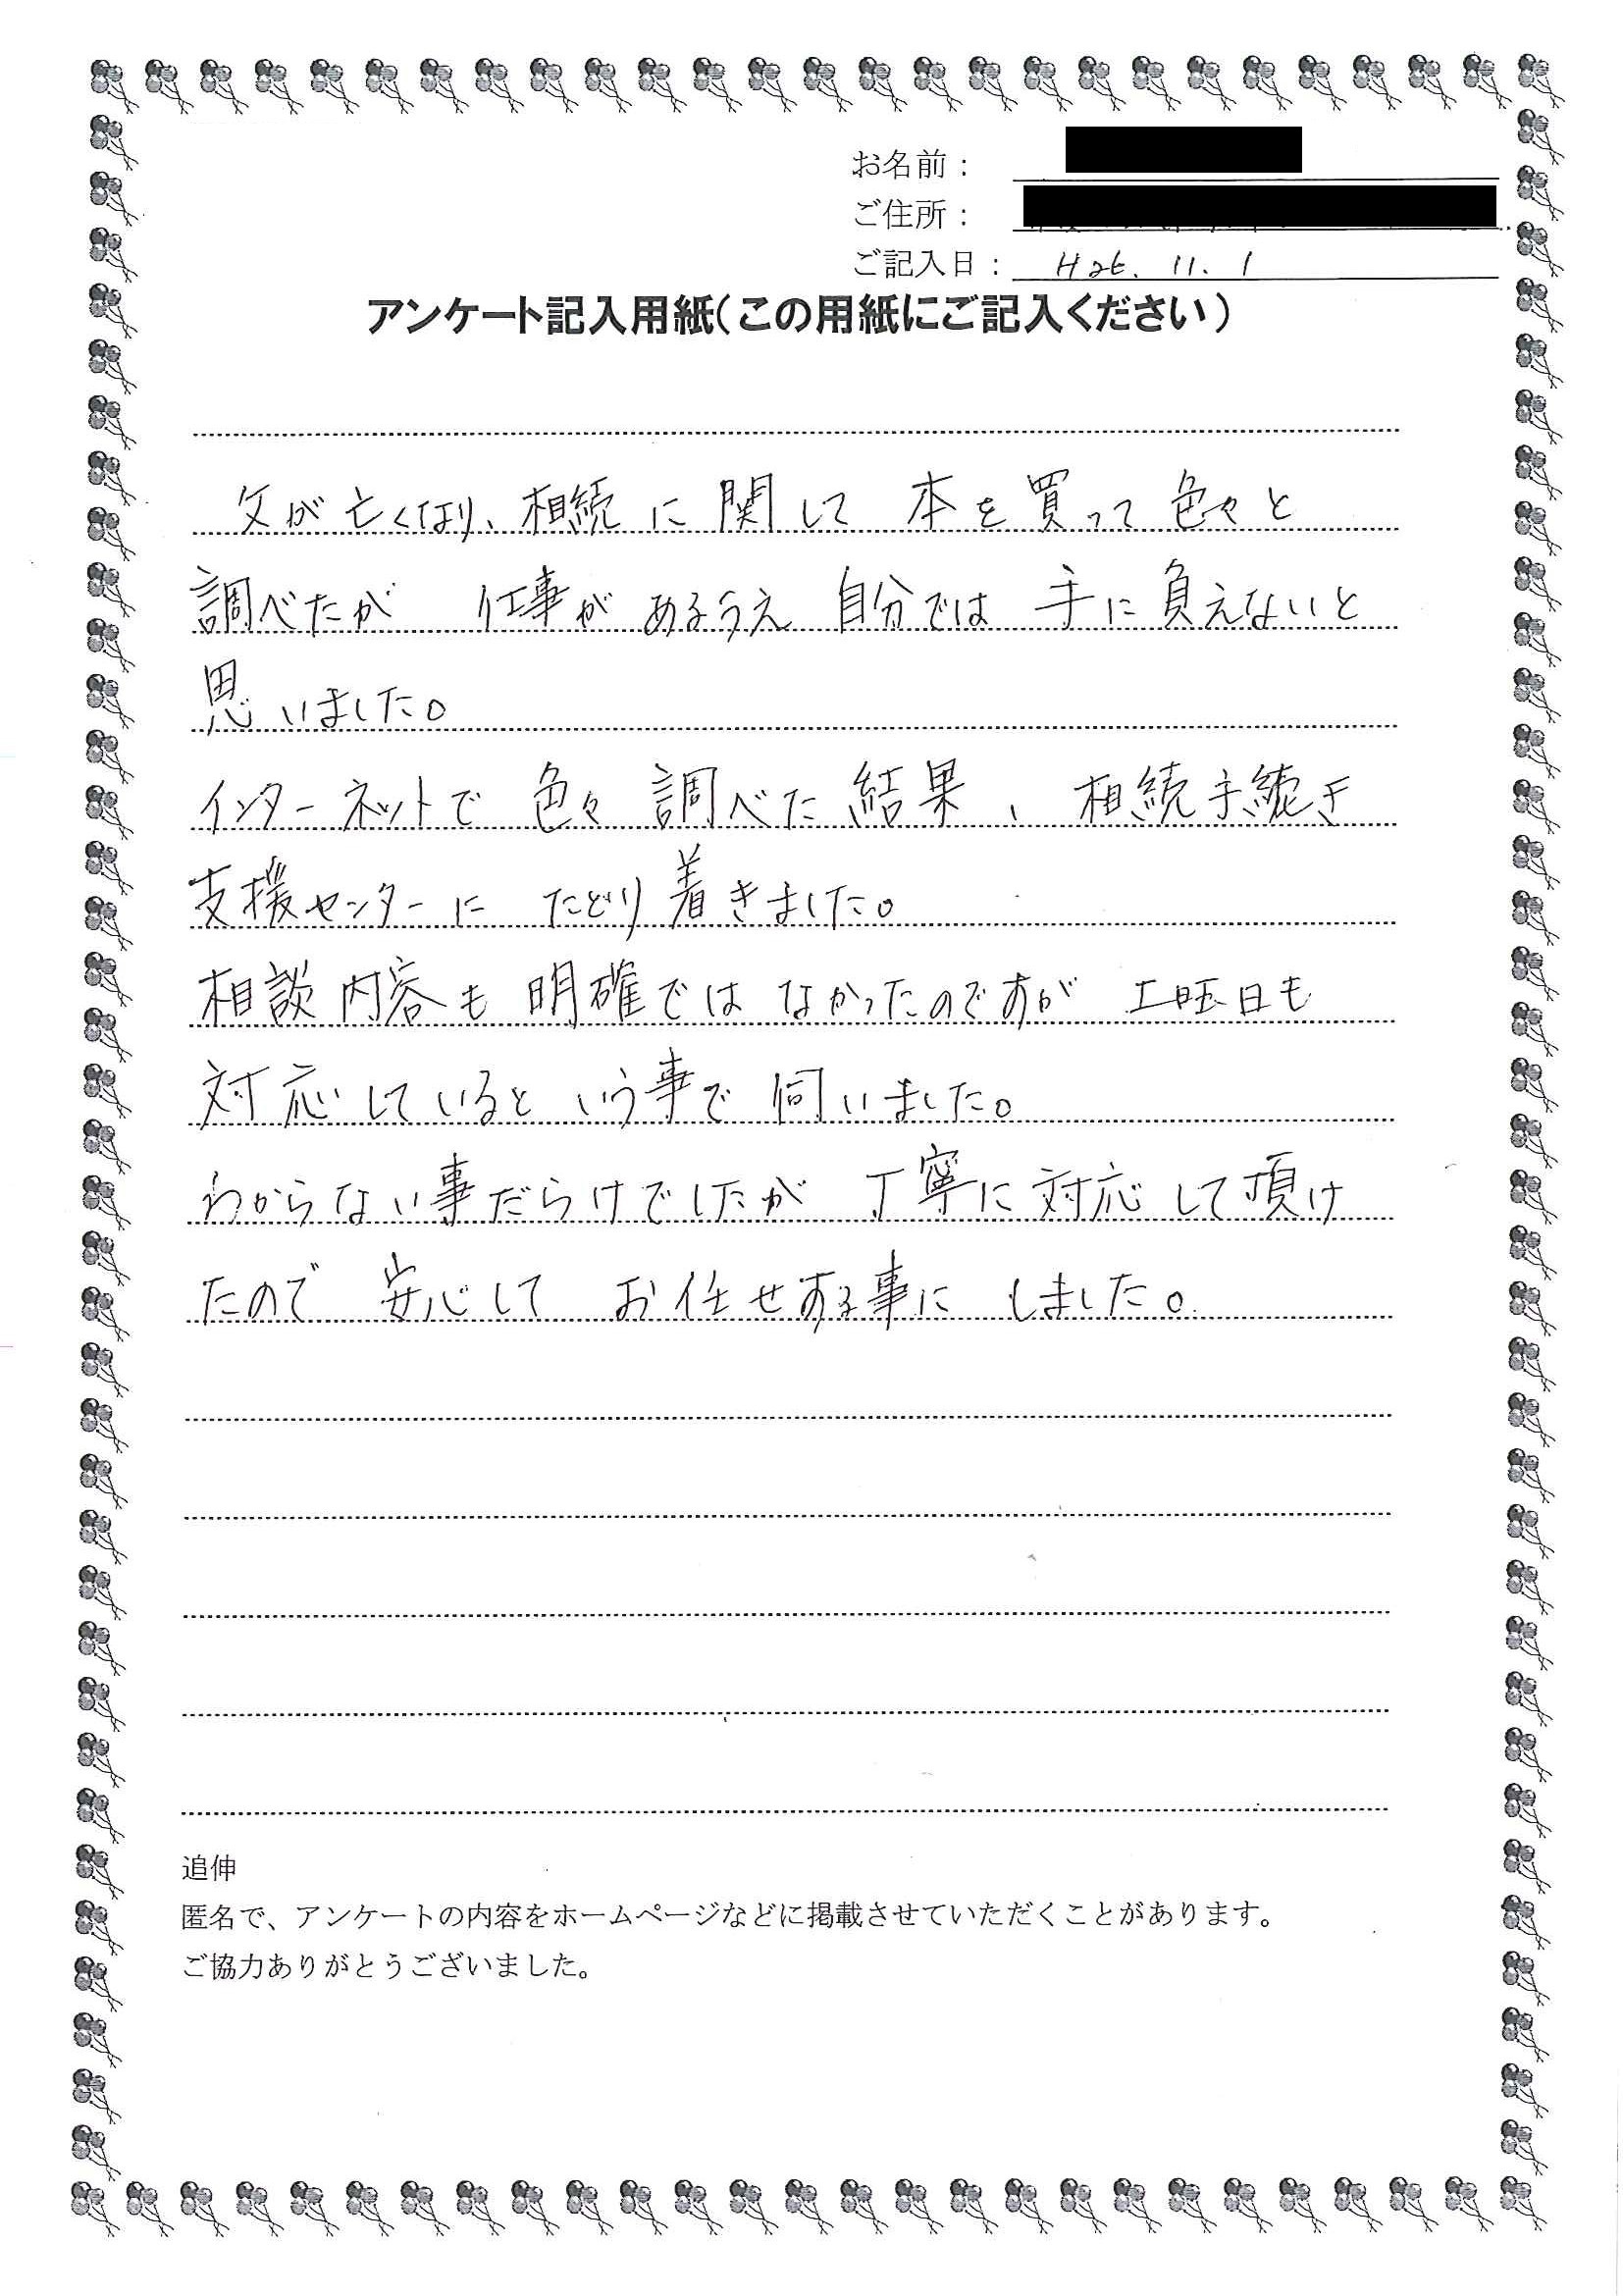 お名前：
ご住所：
ご記入日： H26. 11. 1
アンケート記入用紙（この用紙にご記入ください）
父が亡くなり、相続に関して 本を買って色々と
調べたが 仕事が あるうえ 自分では 手に負えないと
思いました。
インターネットで 色々 調べた 結果、相続手続き
支援センターに たどり着きました。
相談内容も 明確では なかったのですが 土曜日も
対応していると いう事で 伺いました。
わからない事だらけでしたが 丁寧に対応して頂け
たので 安心して お任せする事に しました。
追伸
匿名で、アンケートの内容をホームページなどに掲載させていただくことがあります。
ご協力ありがとうございました。